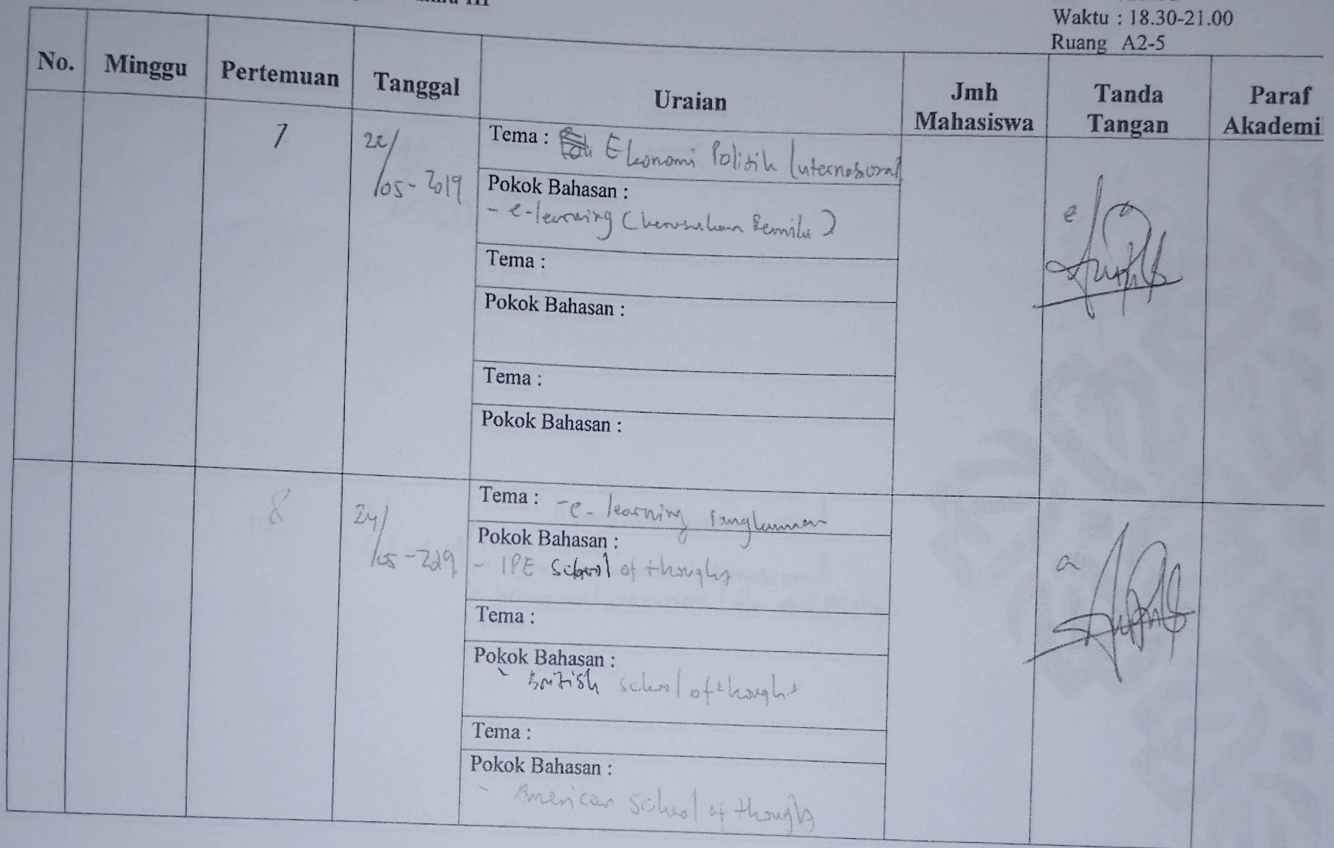 III
Waktu : 18.30-21.00
Ruang A2-5
No. Minggu Pertemuan Tanggal Uraian Jmh Mahasiswa Tanda Tangan Paraf Akademi
7
22/
/05-2019
Tema : Ekonomi Politik Internasional
Pokok Bahasan :
- e-learning (kerusuhan Pemilu)
Tema :
Pokok Bahasan :
Tema :
Pokok Bahasan :
8
24/
/05-2019
Tema : -e-learning rangkuman
Pokok Bahasan :
- IPE School of thought
Tema :
Pokok Bahasan :
- British school of thought
Tema :
Pokok Bahasan :
- American School of thought